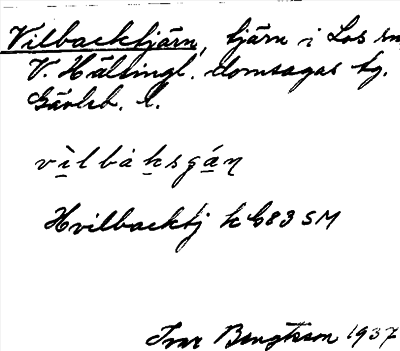 Vilbacktjärn, tjärn i Los sn,
V. Hälsingl. domsagas tg.
Gävleb. l.
vìlbàksgán
Hvilbacktj k C83 SM
Ivar Bengtsson 1937